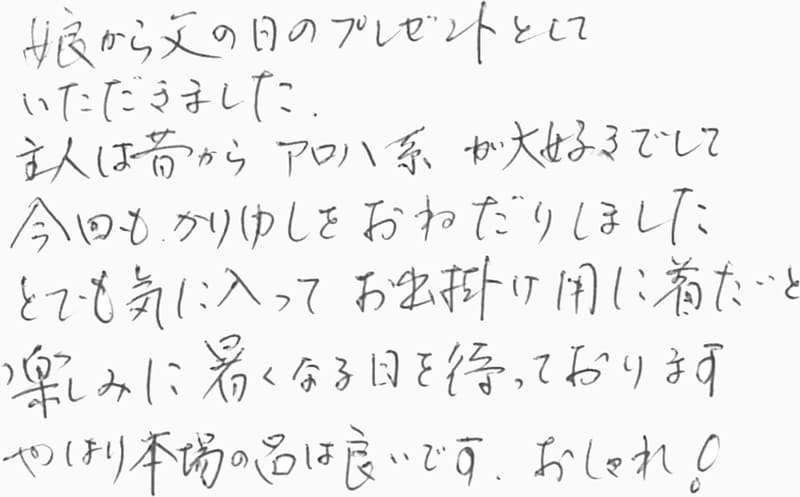 娘から父の日のプレゼントとして
いただきました.
主人は昔から アロハ系 が大好きでして
今回も.かりゆしをおねだりしました
とても気に入って お出掛け用に着たいと
楽しみに 暑くなる日を待っております
やはり本場の品は良いです. おしゃれ!